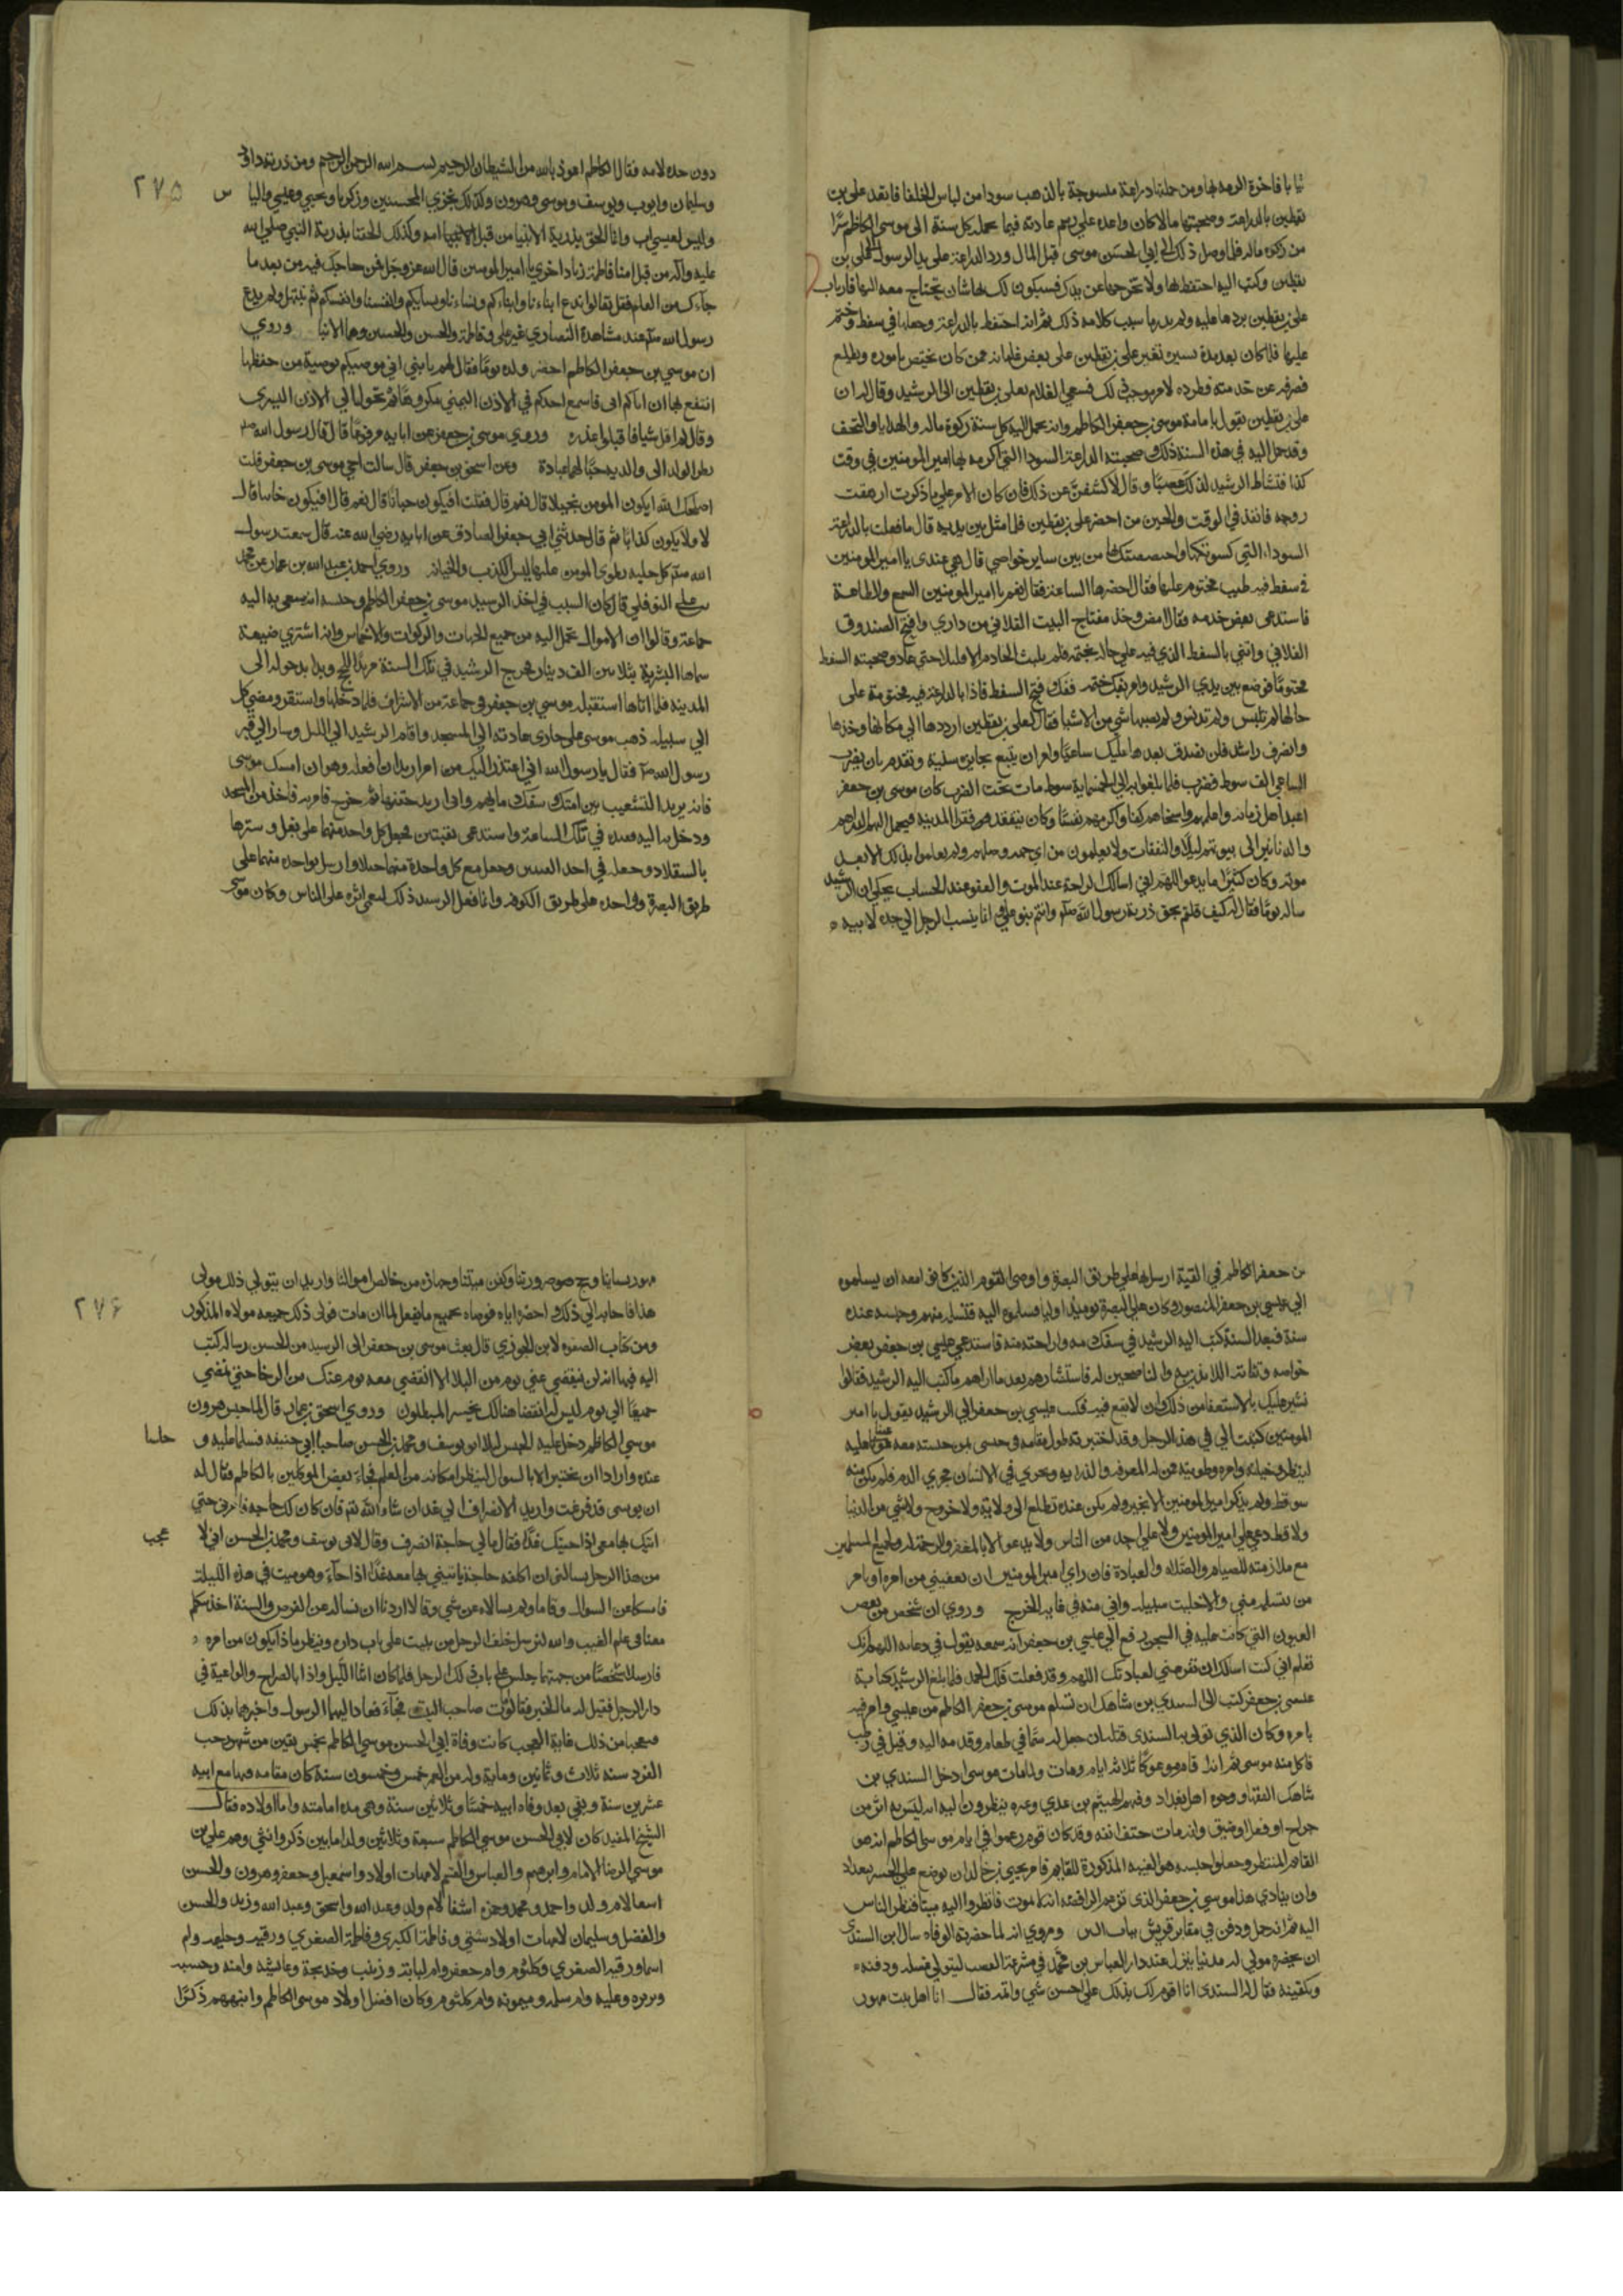 ثيابا فاخرة اكرمه بها ومن جملتها دراعة منسوجة بالذهب سودا من لباس الخلفا فانفذ علي بن
يقطين بالدراعة وصحبتها مالا كان واعده علي رسم عادته فيما يحمله كل سنة الى موسى الكاظم سرًّا
من زكوة ماله فلما وصل ذلك الى ابي الحسن موسى قبل المال ورد الدراعة على يد الرسول الى علي بن
يقطين وكتب اليه احتفظ بها ولا تخرجها عن يدك فسيكون لك بها شان تحتاج معه اليها فارتاب
علي بن يقطين بردها عليه ولم يدر ما سبب كلامه ذلك ثم انه احتفظ بالدراعة وجعلها في سفط وختم
عليها فلما كان بعد مدة يسيرة تغير علي بن يقطين على بعض غلمانه ممن كان يختص باموره ويطلع
فصرفه عن خدمته وطرده لامر موجب ذلك فسعى الغلام بعلي بن يقطين الى الرشيد وقال له ان
علي بن يقطين يقول بامامة موسى بن جعفر الكاظم وانه يحمل اليه كل سنة زكوة ماله والهدايا والتحف
وقد حمل اليه في هذه السنة ذلك وصحبته الدراعة السودا التي اكرمه بها امير المومنين في وقت
كذا فنشاط الرشيد لذلك غضبًا وقال لاكشفنّ عن ذلك فان كان الامر علي ما ذكرت ازهقت
روحه فانفذ في الوقت والحين من احضر علي بن يقطين فلما مثل بين يديه قال ما فعلت بالدراعة
السوداء التي كسوتكها واختصصتك بها من بين ساير خواصي قال هي عندي يا امير المومنين
في سفط فيه طيب مختوم عليها فقال احضرها الساعة فقال نعم يا امير المومنين السمع والطاعة
فاستدعى بعض خدمه وقال امض وخذ مفتاح البيت الفلاني من داري وافتح الصندوق
الفلاني واتني بالسفط الذي فيه علي حاله بختمه فلم يلبث الخادم الا قليلا حتى عاد وصحبته السفط
مختومًا فوضع بين يدي الرشيد وامر بفك ختمه ففك وفتح السفط فاذا بالدراعة فيه مختومة على
حالها لم تلبس ولم تدنس ولم يصبها شي من الاشيا فقال لعلي بن يقطين ارددها الي مكانها وخذها
وانصرف راشدا فلن نصدق بعدها عليك ساعيًا وامر ان يتبع بجايزة سنية وتقدم بان يضرب
الساعي الف سوط فضرب فلما بلغوا به الى الخمسماية سوط مات تحت الضرب كان موسى بن جعفر
اعبد اهل زمانه واعلمهم واسخاهم كفا واكرمهم نفسًا وكان يتفقد فقرا المدينة فيحمل اليهم الدراهم
والدنانير الى بيوتهم ليلا والنفقات ولا يعلمون من اي جهه وصلهم ولم يعلموا بذلك الا بعد
موته وكان كثيرًا ما يدعو اللهم اني اسالك الراحة عند الموت والعفو عند الحساب يحكى ان الرشيد
ساله يومًا فقال له كيف قلتم نحن ذرية رسول الله صلم وانتم بنو علي وانما ينسب الرجل الي جده لابيه
٢٧٥
دون جده لامه فقال الكاظم اعوذ بالله من الشيطان الرجيم بسم الله الرحمن الرحيم ومن ذريته داود
وسليمان وايوب ويوسف وموسى وهرون وكذلك نجزي المحسنين وزكريا ويحيى وعيسى والياس
وليس لعيسى اب وانما الحق بذرية الانبيا من قبل امه وكذلك الحقنا بذرية النبي صلى الله
عليه وآله من قبل امنا فاطمة وزيادة اخري يا امير المومنين قال الله عز وجل فمن حاجك فيه من بعد ما
جآءك من العلم فقل تعالوا ندع ابناءنا وابناءكم ونساءنا ونساءكم وانفسنا وانفسكم ثم نبتهل ولم يدع
رسول الله صلم عند مشاهدة النصاري غير علي وفاطمة والحسن والحسين وهما الابنا وروي
ان موسي بن جعفر الكاظم احضر ولده يومًا فقال لهم يا بني اني موصيكم بوصية من حفظها
انتفع بها ان اتاكم اتى فاسمع احدكم في الاذن اليمنى مكروهًا ثم تحول الي الاذن اليسرى
وقال لم اقل شيا فاقبلوا عذره وروي موسى بن جعفر عن ابايه مرفوعًا قال قال رسول الله صلم
نظر الولد الى والديه حبًا لهما عبادة وعن اسحق بن جعفر قال سالت اخي موسى بن جعفر قلت
اصلحك الله ايكون المومن بخيلا قال نعم قال فقلت افيكون جبانًا قال نعم قال افيكون خاينا قال
لا ولا يكون كذابا ثم قال حدثني ابي جعفر الصادق عن ابايه رضي الله عنه قال سمعت رسول
الله صلم كل خلية يطوى المومن عليها ليس الكذب والخيانه وروي احمد بن عبد الله بن عمار عن محمد
بن علي النوفلي قال كان السبب في اخذ الرشيد موسى بن جعفر الكاظم وحبسه انه سعى به اليه
جماعة وقالوا ان الاموال تحمل اليه من جميع الجهات والزكوات والاخماس وانه اشتري ضيعة
سماها البشرية بثلاثين الف دينار فخرج الرشيد في تلك السنة مريدًا للحج وبدا بدخوله الى
المدينه فلما اتاها استقبله موسى بن جعفر في جماعة من الاشراف فلما دخلها واستقر ومضي كل
الي سبيله ذهب موسى علي جاري عادته الى المسجد واقام الرشيد الي الليل وسار الي قبر
رسول الله صلم فقال يا رسول الله اني اعتذر اليك من امر اريد ان افعله وهو ان امسك موسى
فانه يريد التشعيب بين امتك وسفك دمايهم واني اريد حقنها ثم خرج فامر به فاخذ من المسجد
ودخل به اليه فقيده في تلك الساعة واستدعى بقبتين فجعل كل واحدة منهما على بغل وسترها
بالسقلاد وجعله في احد القبتين وجعل مع كل واحدة منهما خيلا وارسل بواحده منهما على
طريق البصرة وواحده على طريق الكوفه وانما فعل الرشيد ذلك ليعمي اثره على الناس وكان موسى
بن جعفر الكاظم في القبة ارسل بها علي طريق البصرة واوصى القوم الذين كانوا معه ان يسلموه
الي عيسي بن جعفر المنصور وكان علي البصرة يوميذ واليا فسلموه اليه فتسلمه منهم وحبسه عنده
سنة فبعد السنة كتب اليه الرشيد في سفك دمه واراحته منه فاستدعى عيسي بن جعفر بعض
خواصه وثقاته والناصحين له فاستشارهم بعد ما اراهم ما كتب اليه الرشيد فقالوا
نشير عليك بالاستعفا من ذلك وان لا تقع فيه فكتب عيسى بن جعفر الي الرشيد يقول يا امير
المومنين كتبت الي في هذا الرجل وقد اختبرته طول مقامه في حبسى بمن حبسته معه عينا عليه
لينظروا حيلته وامره وطويته ممن له المعرفه والدرايه ويجري في الانسان مجري الدم فلم يكن منه
سو قط ولم يذكر امير المومنين الا بخير ولم يكن عنده تطلع الى ولاية ولا خروج ولا شي من الدنيا
ولا قط دعى على امير المومنين ولا علي احد من الناس ولا يدعو الا بالمغفرة والرحمة له ولجميع المسلمين
مع ملازمته للصيام والصلاه والعبادة فان راى امير المومنين ان يعفيني من امره او يامر
من يتسلمه مني والا خليت سبيله واني منه في غاية الحرج وروي ان شخص من بعض
العيون التي كانت عليه في السجن رفع الي عيسي بن جعفر انه سمعه يقول في دعايه اللهم انك
تعلم اني كنت اسالك ان تفرغني لعبادتك اللهم وقد فعلت فلك الحمد فلما بلغ الرشيد كتابة
عيسى بن جعفر كتب الى السندي بن شاهك ان تسلم موسى بن جعفر الكاظم من عيسي وامر فيه
بامره وكان الذي تولى به السندى قتله ان جعل له سمًّا في طعام وقدمه اليه وقيل في رطب
فاكل منه موسى ثم انه اقام موعوكًا ثلاثه ايام ومات ولما مات موسى ادخل السندي بن
شاهك الفقها ووجوه اهل بغداد وفيهم الهيثم بن عدي وغيره ينظرون اليه انه ليس به اثر من
جراح او فعل او خنق وانه مات حتف انفه وقد كان قوم زعموا في ايام موسى الكاظم انه هو
القايم المنتظر وجعلوا حبسه هو الغيبه المذكورة للقايم فامر يحيى بن خالد ان يوضع علي الجسر ببغداد
وان ينادي هذا موسي بن جعفر الذى تزعم الرافضه انه لا يموت فانظروا اليه ميتا فنظر الناس
اليه ثم انه حمل ودفن في مقابر قريش بباب التين وروي انه لما حضرته الوفاه سال ابن السندى
ان يحضره مولى له مدنيا ينزل عند دار العباس بن محمد في مشرعة القصب ليتولى غسله ودفنه
وتكفينه فقال له السندى انا اقوم لك بذلك علي احسن شي واتمه فقال انا اهل بيت مهور
٢٧۶
مهور نساينا وحج صرورتنا وكفن ميتنا وجهازه من خالص اموالنا واريد ان يتولي ذلك مولى
هذا فاجابه الي ذلك واحضره اياه فوصاه بجميع ما يفعل فلما ان مات تولى ذلك جميعه مولاه المذكور
ومن كتاب الصفوه لابن الجوزي قال بعث موسى بن جعفر الى الرشيد من الحبس رساله كتب
اليه فيها انه لن ينقضي عني يوم من البلا الا انقضى معه يوم عنك من الرخا حتى نمضي
جميعًا الي يوم ليس له انقضا هنالك يخسر المبطلون وروي اسحق بن عمار قال لما حبس هرون
موسى الكاظم دخل عليه الحبس ليلا ابو يوسف ومحمد بن الحسن صاحبا ابي حنيفه فسلما عليه و جلسا
عنده وارادا ان يختبراه بالسوال لينظرا مكانه من العلم فجاءه بعض الموكلين بالكاظم فقال له
ان نوبتي قد فرغت واريد الانصراف الي غد ان شاء الله تعالى فان كان لك حاجه فامرني حتي
اتيك بها معي اذا جيتك غدًا فقال مالي حاجة انصرف وقال لابي يوسف ومحمد بن الحسن اني لاعجب
من هذا الرجل يسالني ان اكلفه حاجة ياتيني بها معه غدًا اذا جآء وهو ميت في هذه الليلة
فامسكا عن السوال وقاما ولم يسالاه عن شي وقالا اردنا ان نساله عن الفرض والسنة اخذ يتكلم
معنا في علم الغيب والله لنرسل خلف الرجل من يبيت علي باب داره وينظر ماذا يكون من امره
فارسلا شخصًا من جهتهما جلس علي باب ذلك الرجل فلما كان اثنا الليل واذا بالصراخ والواعية في
دار الرجل فقيل له ما الخبر فقالوا مات صاحب البيت فجآءة فعاد اليهما الرسول واخبرهما بذلك
فتعجبا من ذلك غاية العجب كانت وفاة ابي الحسن موسى الكاظم لخمس بقين من شهر رجب
الفرد سنه ثلاث وثمانين ومايه وله من العمر خمس وخمسون سنة كان مقامه فيها مع ابيه
عشرين سنة وبقي بعد وفاه ابيه خمسًا وثلاثين سنة وهي مده امامته واما اولاده فقال
الشيخ المفيد كان لابي الحسن موسى الكاظم سبعة وثلاثين ولدا ما بين ذكر وانثي وهم علي بن
موسي الرضا الامام وابراهيم والعباس والقسم لامهات اولاد واسمعيل وجعفر وهرون والحسن
اسما لام ولد واحمد ومحمد وحمزه اشقا لام ولد وعبد الله واسحق وعبد الله وزيد والحسن
والفضل وسليمان لامهات اولاد شتى وفاطمة الكبرى وفاطمة الصغري ورقيه وحليمه وام
اسما ورقيه الصغري وكلثوم وام جعفر وام لبابه وزينب وخديجة وعايشه وامنه وحسنه
وبريره وعليه وام سلمه وميمونه وام كلثوم وكان افضل اولاد موسى الكاظم وانبههم ذكرًا